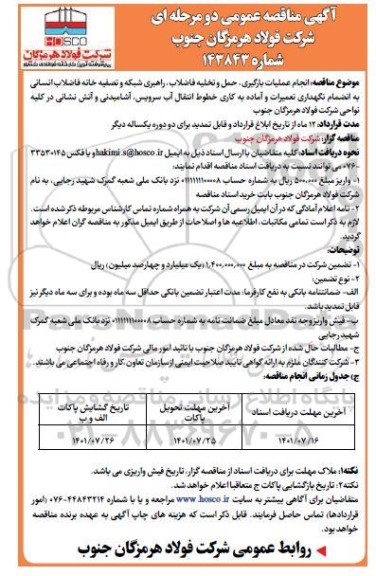 آگهی مناقصه عمومی دو مرحله ای
شرکت فولاد هرمزگان جنوب
شماره ۱۴۳۸۴۳
HOSCO
شرکت فولاد هرمزگان
موضوع مناقصه: انجام عملیات بارگیری، حمل و تخلیه فاضلاب، راهبری شبکه و تصفیه خانه فاضلاب انسانی
به انضمام نگهداری تعمیرات و آماده به کاری خطوط انتقال آب سرویس، آشامیدنی و آتش نشانی در کلیه
نواحی شرکت فولاد هرمزگان جنوب
مدت قرارداد: ۱۲ ماه از تاریخ ابلاغ قرارداد و قابل تمدید برای دو دوره یکساله دیگر
مناقصه گزار: شرکت فولاد هرمزگان جنوب
نحوه دریافت اسناد: کلیه متقاضیان با ارسال اسناد ذیل به ایمیل hakimi.s@hosco.ir و یا فکس ۳۳۵۳۰۱۴۵
-۰۷۶ می توانند نسبت به دریافت اسناد مناقصه اقدام نمایند:
۱- واریز مبلغ ۵۰۰،۰۰۰ ریال به شماره حساب ۰۱۱۱۱۱۱۱۰۰۰۰۸ نزد بانک ملی شعبه گمرک شهید رجایی، به نام
شرکت فولاد هرمزگان جنوب بابت خرید اسناد مناقصه
۲- نامه اعلام آمادگی که در آن ایمیل رسمی آن شرکت به همراه شماره تماس کارشناس مربوطه ذکر شده است.
لازم به ذکر است تمامی مکاتبات، اطلاعیه ها و اصلاحات از طریق ایمیل مذکور به مناقصه گران اعلام خواهد
گردید.
توضیحات:
۱- تضمین شرکت در مناقصه به مبلغ ۱،۴۰۰،۰۰۰،۰۰۰ (یک میلیارد و چهارصد میلیون) ریال
۲- نوع تضمین:
الف- ضمانتنامه بانکی به نفع کارفرما: مدت اعتبار تضمین بانکی حداقل سه ماه بوده و برای سه ماه دیگر نیز
قابل تمدید باشد.
ب- فیش واریز وجه نقد معادل مبلغ ضمانت نامه به شماره حساب ۰۱۱۱۱۱۱۱۰۰۰۰۸ نزد بانک ملی شعبه گمرک
شهید رجایی
ج- مطالبات حال شده از شرکت فولاد هرمزگان جنوب با تائید امور مالی شرکت فولاد هرمزگان جنوب
۳- شرکت کنندگان ملزم به ارائه گواهی تایید صلاحیت ایمنی از سازمان تعاون، کار و رفاه اجتماعی می باشند.
ج) جدول زمانی انجام مناقصه:
آخرین مهلت دریافت اسناد آخرین مهلت تحویل پاکات تاریخ گشایش پاکات الف و ب
۱۴۰۱/۰۷/۱۶ ۱۴۰۱/۰۷/۲۵ ۱۴۰۱/۰۷/۲۶
نکته۱: ملاک مهلت برای دریافت اسناد از مناقصه گزار، تاریخ فیش واریزی می باشد.
نکته۲: تاریخ بازگشایی پاکات ج متعاقبا اعلام خواهد شد.
متقاضیان برای آگاهی بیشتر به سایت www.hosco.ir مراجعه و یا با شماره ۴۴۸۴۳۲۱۴-۰۷۶ (امور
قراردادها) تماس حاصل فرمایند. قابل ذکر است که هزینه های چاپ آگهی به عهده برنده مناقصه
خواهد بود.
روابط عمومی شرکت فولاد هرمزگان جنوب